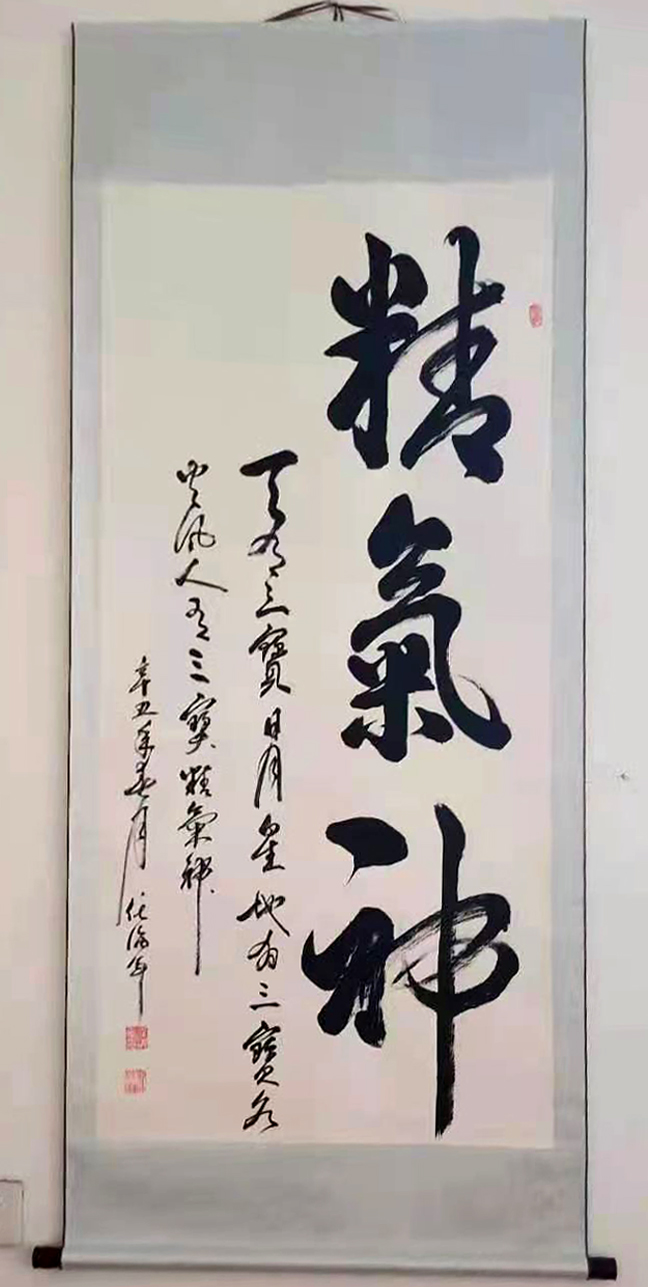 精氣神
天有三寶日月星地有三寶水
火風人有三寶精氣神
辛丑年春月任